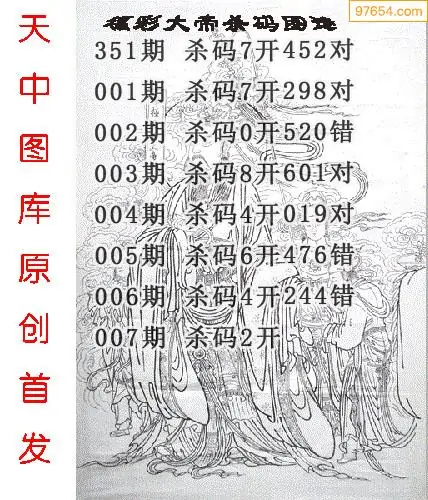 97654.com
福彩大帝杀码图迷
351期 杀码7开452对
001期 杀码7开298对
002期 杀码0开520错
003期 杀码8开601对
004期 杀码4开019对
005期 杀码6开476错
006期 杀码4开244错
007期 杀码2开
天中图库原创首发